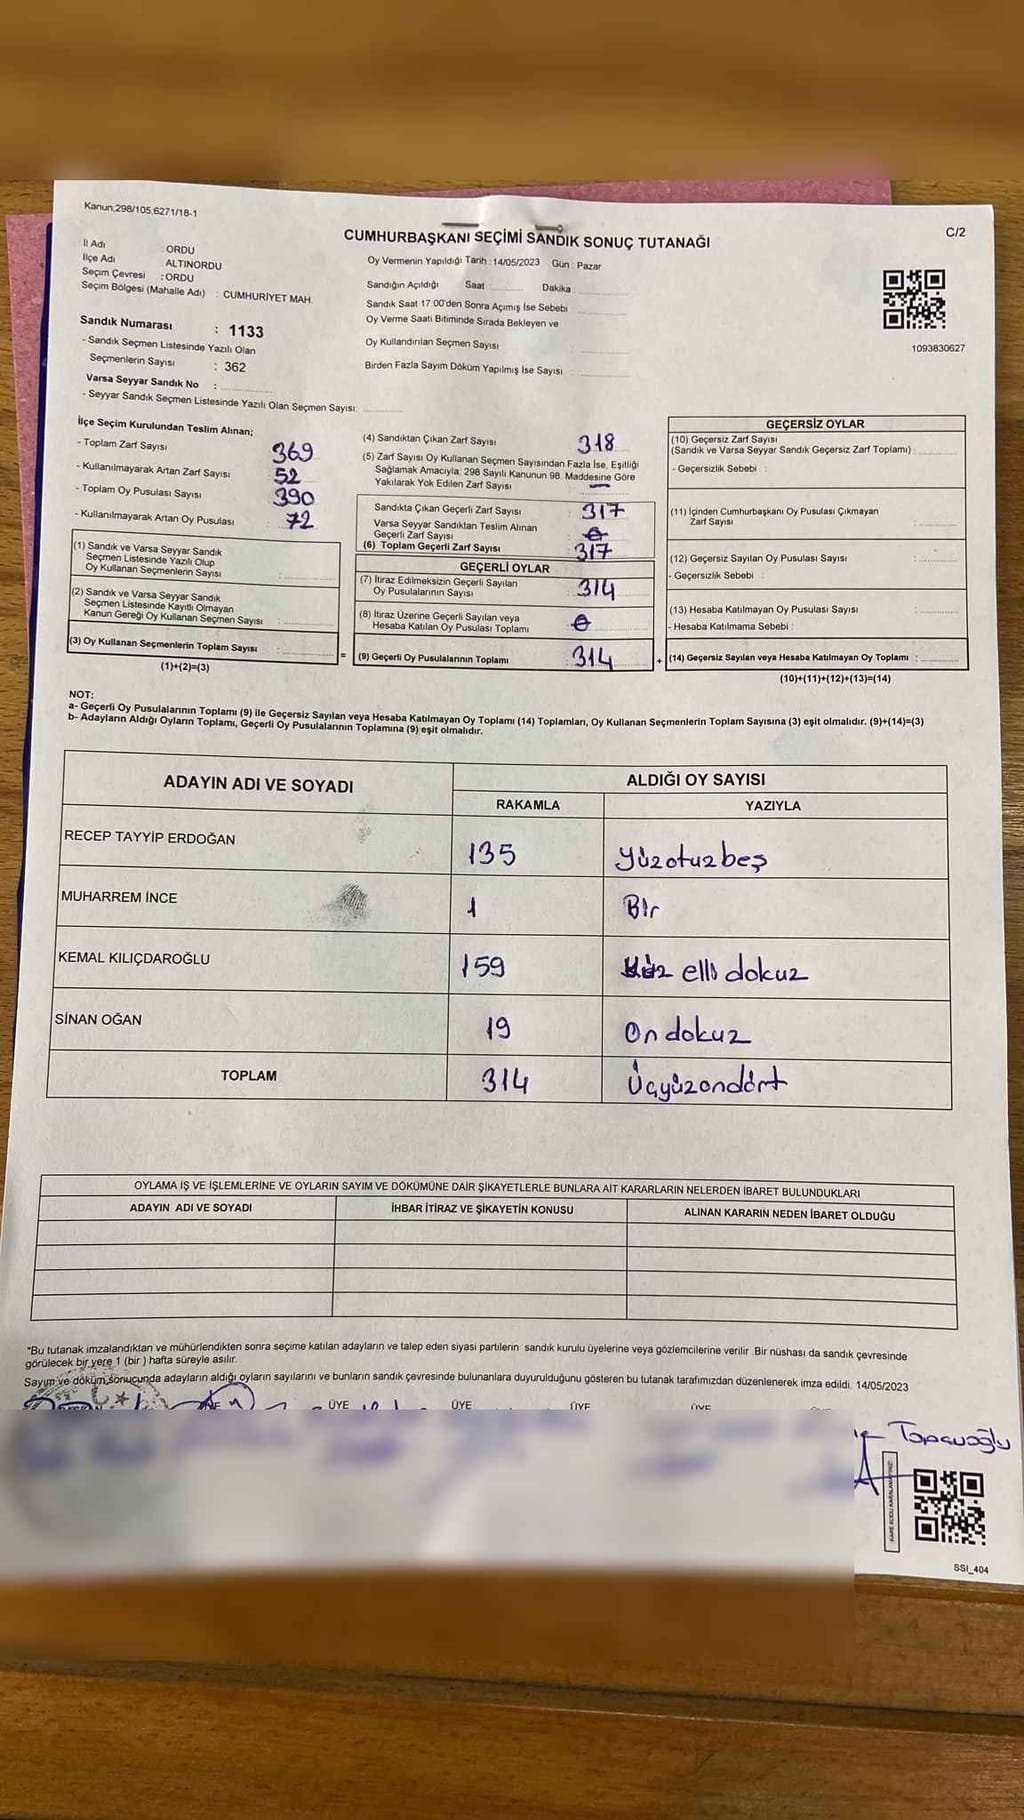 Kanun,298/105,6271/18-1
C/2
CUMHURBAŞKANI SEÇİMİ SANDIK SONUÇ TUTANAĞI
İl Adı : ORDU
İlçe Adı : ALTINORDU
Seçim Çevresi : ORDU
Seçim Bölgesi (Mahalle Adı) : CUMHURİYET MAH.
Sandık Numarası : 1133
- Sandık Seçmen Listesinde Yazılı Olan
Seçmenlerin Sayısı : 362
Varsa Seyyar Sandık No :
- Seyyar Sandık Seçmen Listesinde Yazılı Olan Seçmen Sayısı:
Oy Vermenin Yapıldığı Tarih : 14/05/2023 Gün : Pazar
Sandığın Açıldığı Saat Dakika :
Sandık Saat 17:00'den Sonra Açımış İse Sebebi
Oy Verme Saati Bitiminde Sırada Bekleyen ve
Oy Kullandırılan Seçmen Sayısı
Birden Fazla Sayım Döküm Yapılmış İse Sayısı :
1093830627
İlçe Seçim Kurulundan Teslim Alınan;
- Toplam Zarf Sayısı 369
- Kullanılmayarak Artan Zarf Sayısı 52
- Toplam Oy Pusulası Sayısı 390
- Kullanılmayarak Artan Oy Pusulası 72
(1) Sandık ve Varsa Seyyar Sandık
Seçmen Listesinde Yazılı Olup
Oy Kullanan Seçmenlerin Sayısı :
(2) Sandık ve Varsa Seyyar Sandık
Seçmen Listesinde Kayıtlı Olmayan
Kanun Gereği Oy Kullanan Seçmen Sayısı :
(3) Oy Kullanan Seçmenlerin Toplam Sayısı :
(1)+(2)=(3)
=
(4) Sandıktan Çıkan Zarf Sayısı 318
(5) Zarf Sayısı Oy Kullanan Seçmen Sayısından Fazla İse, Eşitliği
Sağlamak Amacıyla; 298 Sayılı Kanunun 98. Maddesine Göre
Yakılarak Yok Edilen Zarf Sayısı —
Sandıkta Çıkan Geçerli Zarf Sayısı : 317
Varsa Seyyar Sandıktan Teslim Alınan
Geçerli Zarf Sayısı : 0
(6) Toplam Geçerli Zarf Sayısı : 317
GEÇERLİ OYLAR
(7) İtiraz Edilmeksizin Geçerli Sayılan
Oy Pusulalarının Sayısı 314
(8) İtiraz Üzerine Geçerli Sayılan veya
Hesaba Katılan Oy Pusulası Toplamı 0
(9) Geçerli Oy Pusulalarının Toplamı 314
+
GEÇERSİZ OYLAR
(10) Geçersiz Zarf Sayısı
(Sandık ve Varsa Seyyar Sandık Geçersiz Zarf Toplamı) :
- Geçersizlik Sebebi :
(11) İçinden Cumhurbaşkanı Oy Pusulası Çıkmayan
Zarf Sayısı :
(12) Geçersiz Sayılan Oy Pusulası Sayısı :
- Geçersizlik Sebebi :
(13) Hesaba Katılmayan Oy Pusulası Sayısı :
- Hesaba Katılmama Sebebi :
(14) Geçersiz Sayılan veya Hesaba Katılmayan Oy Toplamı :
(10)+(11)+(12)+(13)=(14)
NOT:
a- Geçerli Oy Pusulalarının Toplamı (9) ile Geçersiz Sayılan veya Hesaba Katılmayan Oy Toplamı (14) Toplamları, Oy Kullanan Seçmenlerin Toplam Sayısına (3) eşit olmalıdır. (9)+(14)=(3)
b- Adayların Aldığı Oyların Toplamı, Geçerli Oy Pusulalarının Toplamına (9) eşit olmalıdır.
ADAYIN ADI VE SOYADI ALDIĞI OY SAYISI
RAKAMLA YAZIYLA
RECEP TAYYİP ERDOĞAN 135 Yüzotuzbeş
MUHARREM İNCE 1 Bir
KEMAL KILIÇDAROĞLU 159 Yüz elli dokuz
SİNAN OĞAN 19 On dokuz
TOPLAM 314 Üçyüzondört
OYLAMA İŞ VE İŞLEMLERİNE VE OYLARIN SAYIM VE DÖKÜMÜNE DAİR ŞİKAYETLERLE BUNLARA AİT KARARLARIN NELERDEN İBARET BULUNDUKLARI
ADAYIN ADI VE SOYADI İHBAR İTİRAZ VE ŞİKAYETİN KONUSU ALINAN KARARIN NEDEN İBARET OLDUĞU
*Bu tutanak imzalandıktan ve mühürlendikten sonra seçime katılan adayların ve talep eden siyasi partilerin sandık kurulu üyelerine veya gözlemcilerine verilir .Bir nüshası da sandık çevresinde
görülecek bir yere 1 (bir ) hafta süreyle asılır.
Sayım ve döküm sonucunda adayların aldığı oyların sayılarını ve bunların sandık çevresinde bulunanlara duyurulduğunu gösteren bu tutanak tarafımızdan düzenlenerek imza edildi. 14/05/2023
ÜYE ÜYE ÜYE ÜYE
KARE KODU KARALAMAYINIZ!
SSI_404